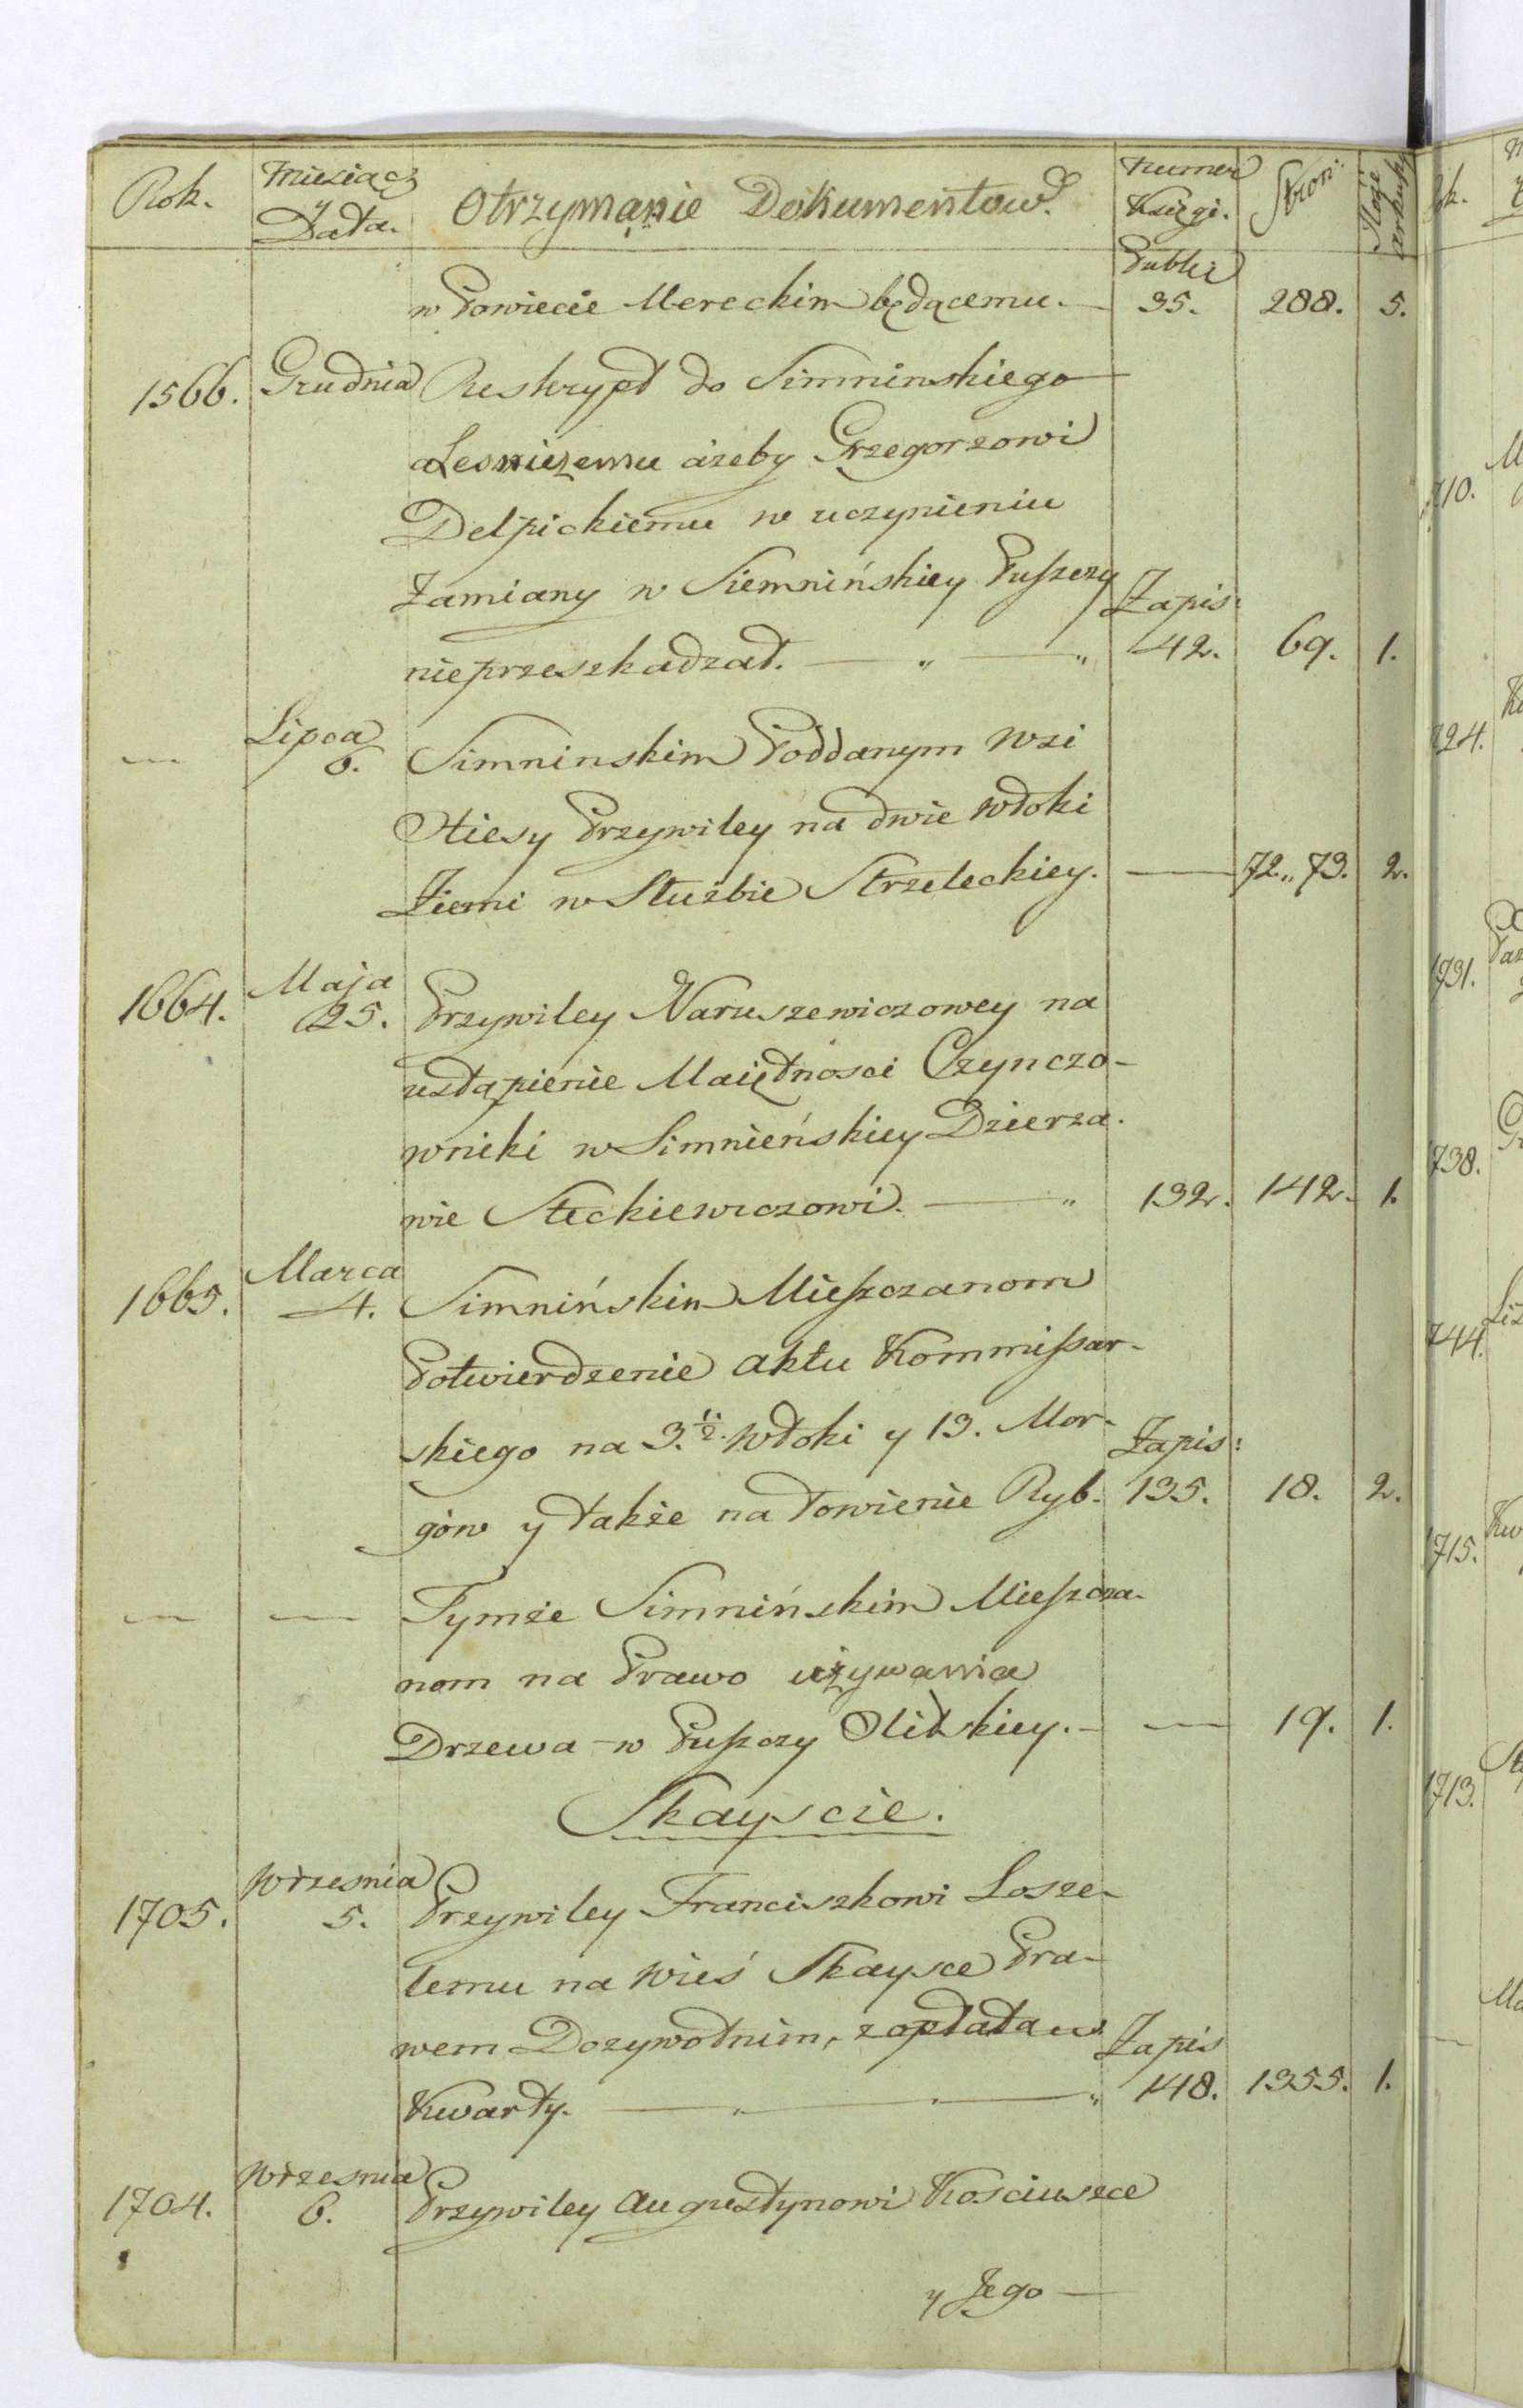 Rok. Miesiąc y Data. Otrzymanie Dokumentow. Numer Księgi. Stron: Ilość arkuszy
Publi
w Powiecie Mereckim będącemu. — 35. 288. 5.
1566. Grudnia Reskrypt do Simninskiego
Lesniczemu ażeby Grzegorzowi
Delpickiemu w uczynieniu
Zamiany w Siemnińskiey Puszczy Zapis:
nieprzeszkadzał. — „ — „ 42. 69. 1.
— Lipca 6. Simninskim Poddanym wsi
Stiesy Przywiley na dwie włoki
Ziemi w Służbie Strzeleckiey. — 72„73. 2.
1664. Maja 25. Przywiley Naruszewiczowey na
ustąpienie Maiętnosci Czynczo-
wniki w Simnieńskiey Dzierza-
wie Steckiewiczowi. — „ 132. 142. 1.
1665. Marca 4. Simnińskim Mieszczanom
Potwierdzenie aktu Kommissar-
skiego na 3. ½. włoki y 13. Mor- Zapis:
gów y także na łowienie Ryb. 135. 18. 2.
— — Tymże Simnińskim Mieszcza-
nom na Prawo używania
Drzewa w Puszczy Olitskiey. — — 19. 1.
Skayscie.
1705. Wrzesnia 5. Przywiley Franciszkowi Losze-
temu na wieś Skaysce Pra-
wem Dozywotnim, z opłatą Zapis
Kwarty. — „ — „ — „ 148. 1355. 1.
1704. Wrzesnia 6. Przywiley Augustynowi Kosciuszce
y Jego —